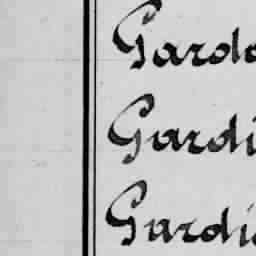 Gardo
Gardi
Gardi